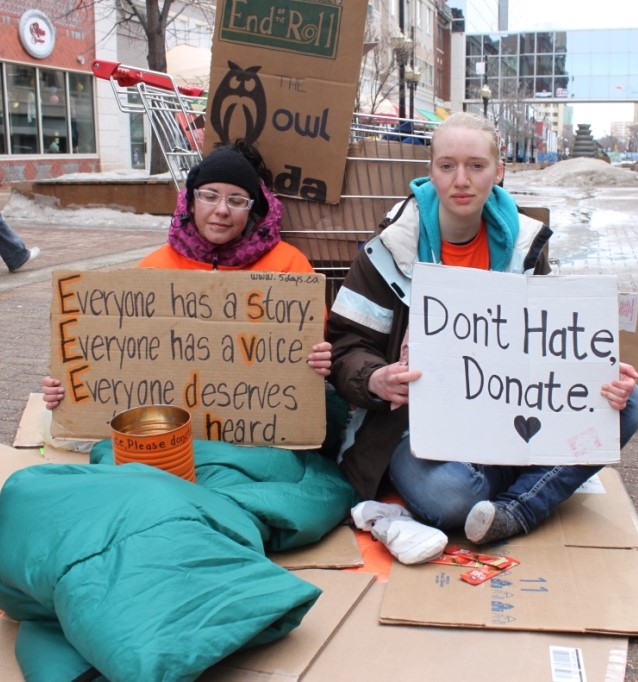 End OF THE Roll
THE
Owl
www.5days.ca
Everyone has a story.
Everyone has a voice
Everyone deserves
heard.
Please
Don't Hate,
Donate.
11